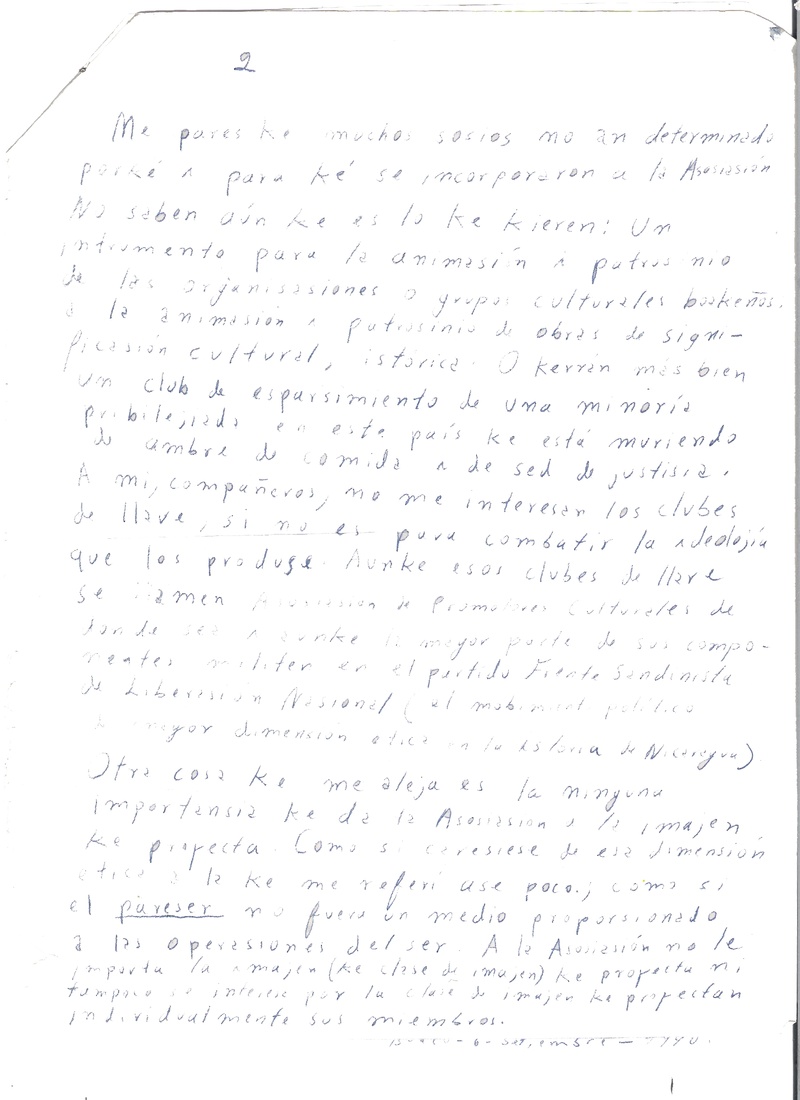 2
Me pares ke muchos sosios no an determinado
porké ʌ para ké se incorporaron a la Asosiasión
No saben aún ke es lo ke kieren: Un
intrumento para la animasión ʌ patrosinio
de las organisasiones o grupos culturales boakeños.
a la animasión ʌ patrosinio de obras de signi-
ficasión cultural, istórica. O kerrán más bien
un club de esparsimiento de una minoría
pribilejiada en este país ke está muriendo
de ambre de comida ʌ de sed de justisia.
A mi, compañeros, no me interesan los clubes
de llave, si no es para combatir la ideolojía
que los produse. Aunke esos clubes de llave
se llamen Asosiasión de Promotores Culturales de
donde sea ʌ aunke la mayor parte de sus compo-
nentes militen en el partido Frente Sandinista
de Liberasión Nasional (el mobimient político
mayor dimensión etica en la istoria de Nicaragua)
Otra cosa ke me aleja es la ninguna
importansia ke da la Asosiasión a la imajen
ke proyecta. Como si caresiese de esa dimensión
etica a la ke me referí ase poco.; como si
el pareser no fuera un medio proporsionado
a las operasiones del ser. A la Asosiasión no le
importa la imajen (ke clase de imajen) ke proyecta ni
tampoco se interesa por la clase de imajen ke proyectan
individualmente sus miembros.
Boaco - 6 - setiembre -